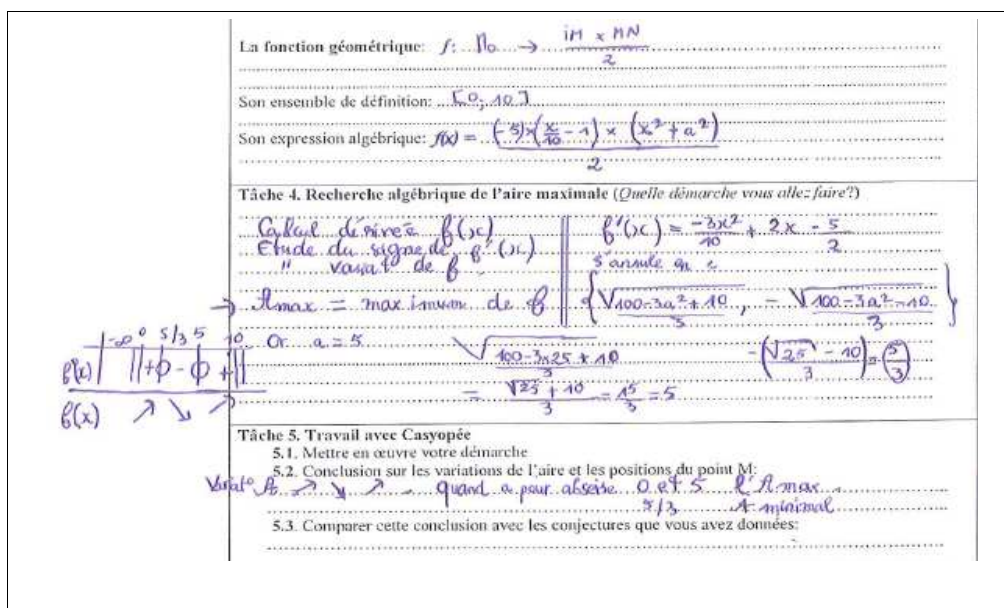 La fonction géométrique: f: Mo → iM x MN / 2
Son ensemble de définition: [0; 10]
Son expression algébrique: f(x) = (-5)x(x/10 - 1) x (x² + a²) / 2
Tâche 4. Recherche algébrique de l'aire maximale (Quelle démarche vous allez faire?)
Calcul dérivée f(x)
Etude du signe de f'(x)
" variat° de f
→ Amax = maximum de f
f'(x) = -3x²/10 + 2x - 5/2
s'annule en
{√100-3a²+10 / 3, - √100-3a²-10 / 3}
Or a = 5
√100-3x25+10 / 3
= √25 + 10 / 3 = 15/3 = 5
-(√25 - 10 / 3) = (5/3)
-∞ 0 5/3 5 10
f'(x) || + ϕ - ϕ + ||
f(x) ↗ ↘ ↗
Tâche 5. Travail avec Casyopée
5.1. Mettre en œuvre votre démarche
5.2. Conclusion sur les variations de l'aire et les positions du point M:
Variat° A ↗ ↘ ↗ - quand a pour abscise 0 et 5 l'Amax
5/3 A minimal
5.3. Comparer cette conclusion avec les conjectures que vous avez données: